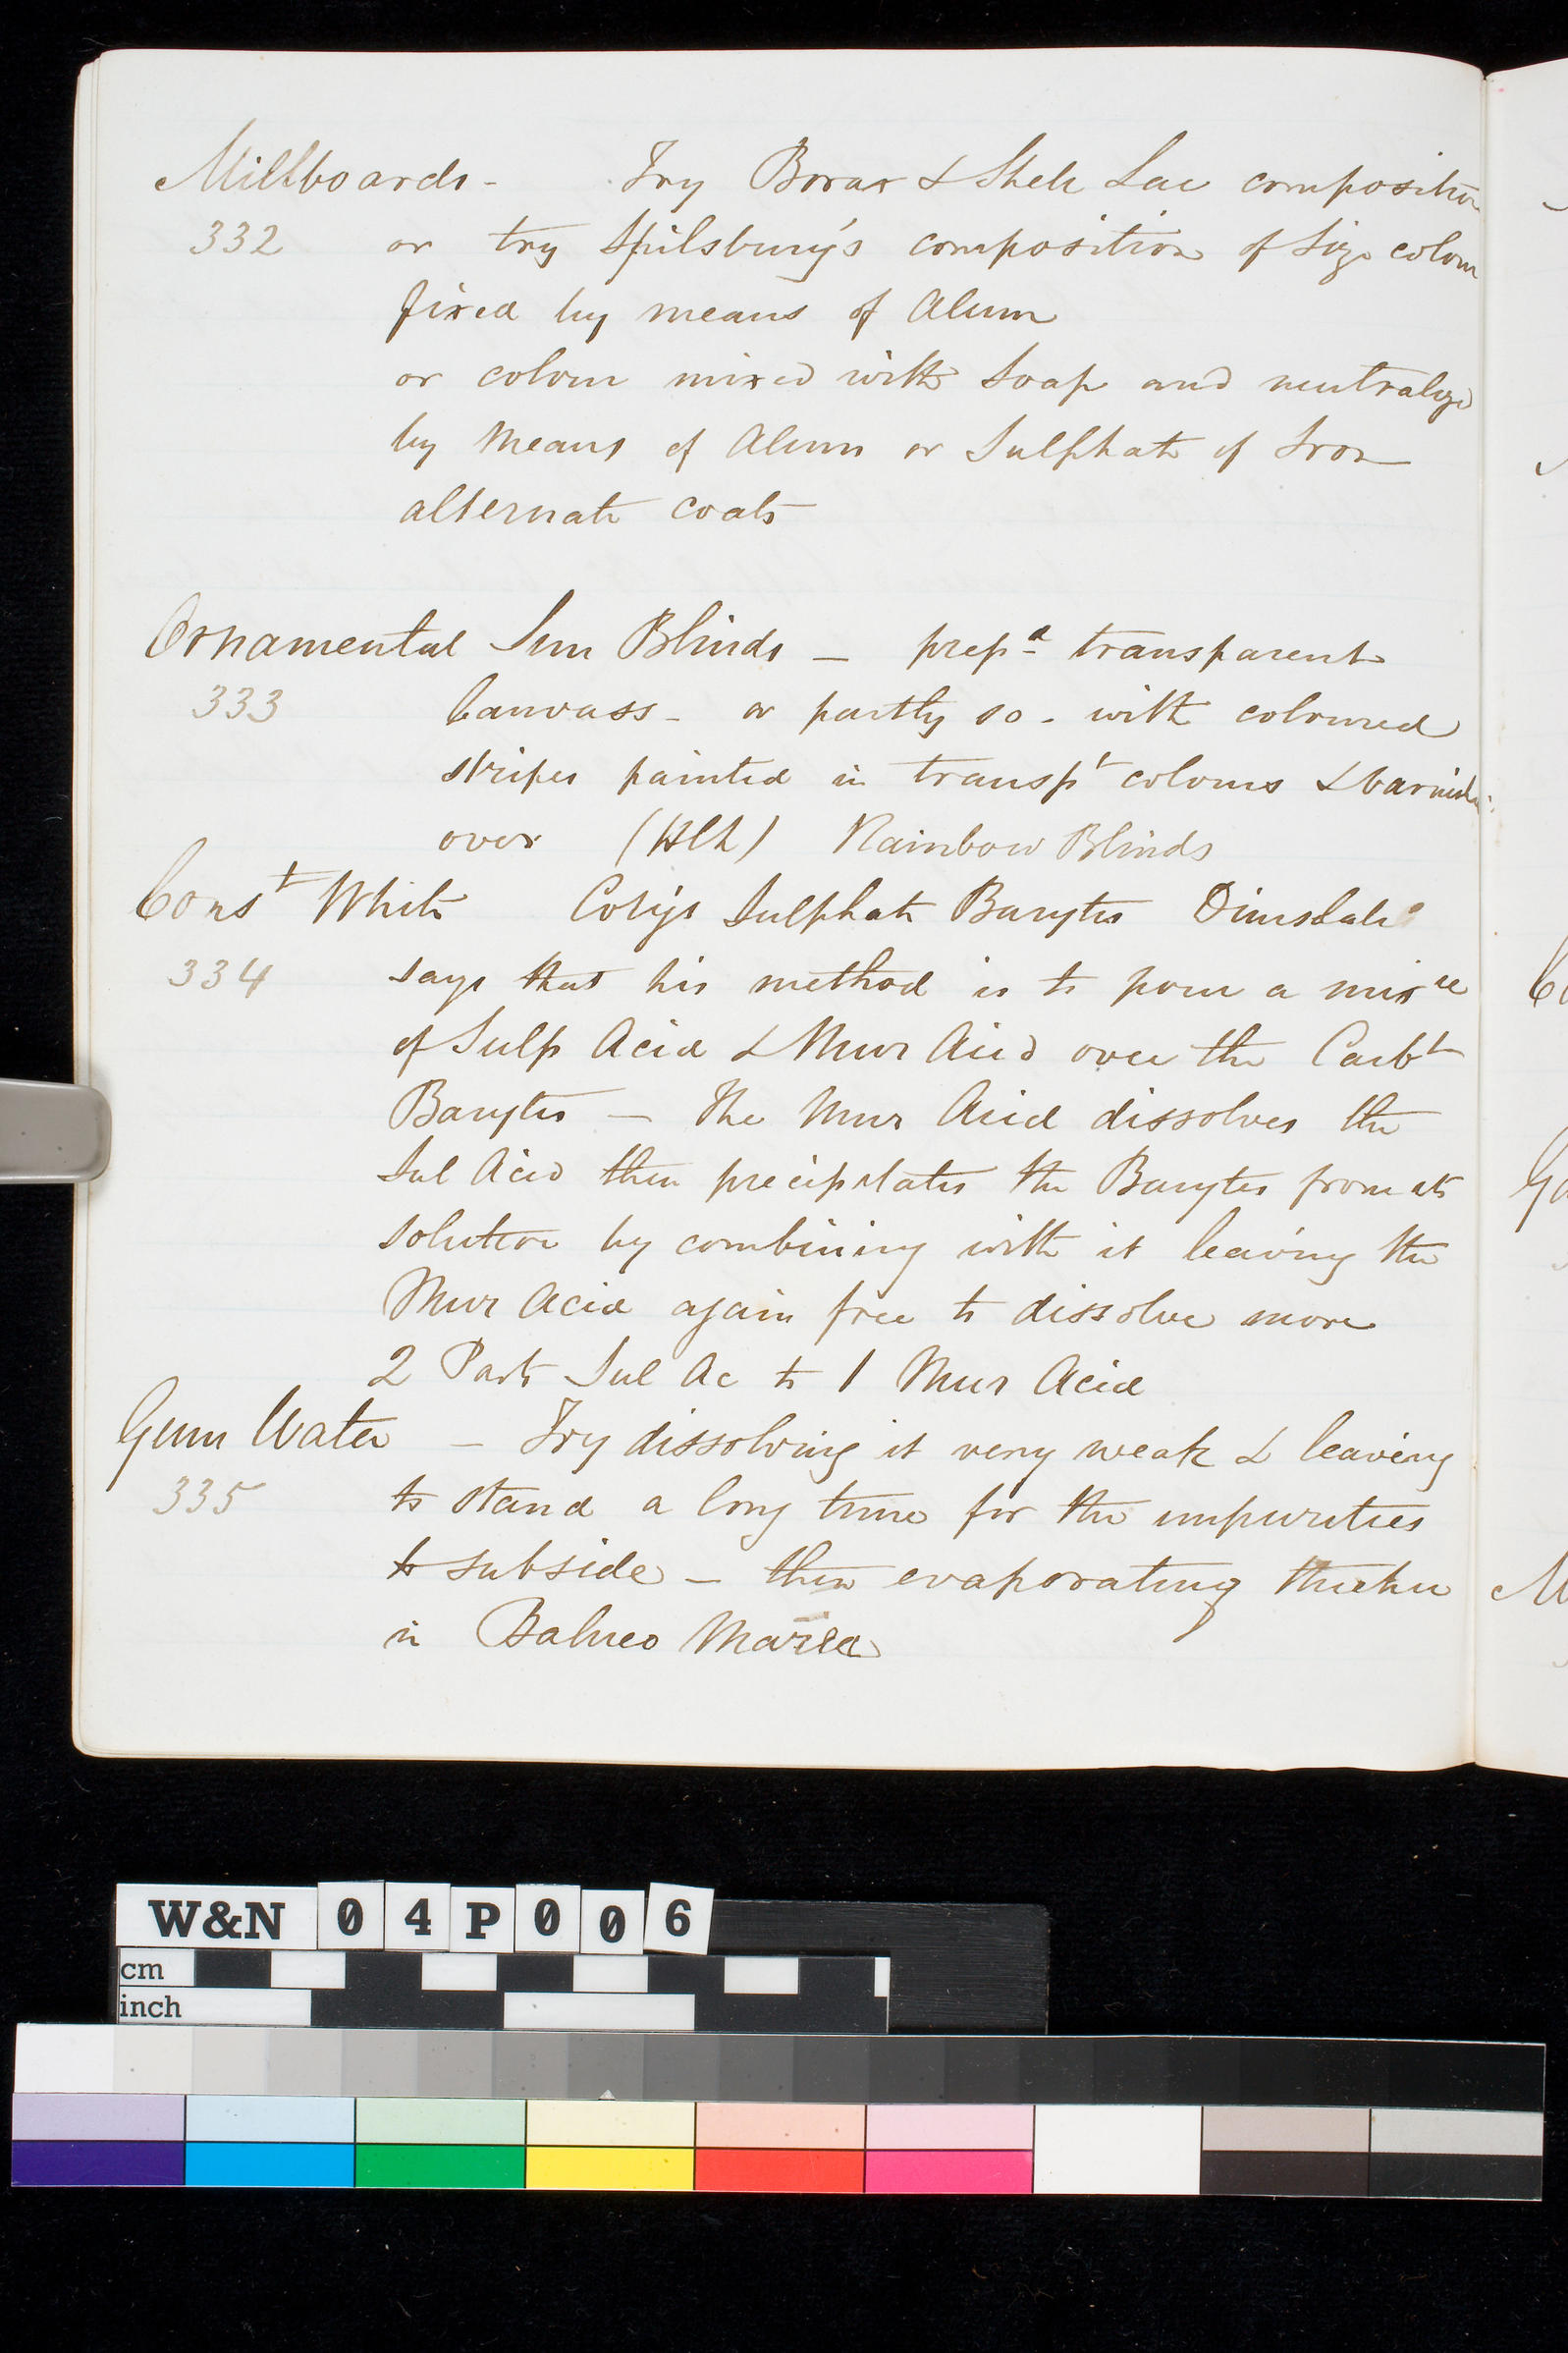 Millboards - Try Borax & Shell Lac composition
332 or try Spilsbury's composition of Size colour
fixed by means of Alum
or colour mixed with Soap and neutralyzd
by means of Alum or Sulphate of Iron
alternate coats
Ornamental Sun Blinds — prepd transparent
333 Canvass - or partly so - with coloured
stripes painted in transpt colours & varnishd
over (HCN) Rainbow Blinds
Const White Coty's Sulphate Barytes Dimsdale
334 says that his method is to pour a mixre
of Sulp Acid & Mur Acid over the Carbte
Barytes — The Mur Acid dissolves the
Sul Acid then precipitates the Barytes from its
solution by combining with it leaving the
Mur Acid again free to dissolve more
2 Parts Sul Ac to 1 Mur Acid
Gum Water — Try dissolving it very weak & leaving
335 to stand a long time for the impurities
to subside — then evaporating thicker
in Balneo Mariae
W&N 04P006
cm
inch